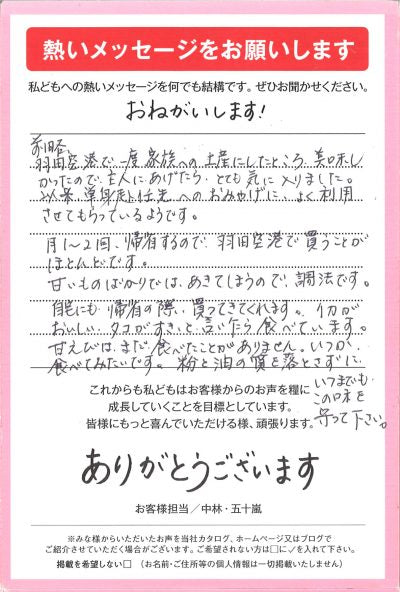 熱いメッセージをお願いします
私どもへの熱いメッセージを何でも結構です。ぜひお聞かせください。
おねがいします!
前略、
羽田空港で一度家族への土産にしたところ 美味し
かったので、主人にあげたら、とても気に入りました。
以来、単身赴任先へのおみやげに、よく利用
させてもらっているようです。
月1〜2回、帰省するので、羽田空港で買うことが
ほとんどです。
甘いものばかりでは、あきてしまうので、調法です。
自宅にも、帰省の際、買ってきてくれます。イカが
おいしい、タコがすきと言いながら食べています。
甘えびは、まだ食べたことがありません。いつか、
食べてみたいです。粉と油の質を落とさずに、
いつまでも
この味を
守って下さい。
これからも私どもはお客様からのお声を糧に
成長していくことを目標としています。
皆様にもっと喜んでいただける様、頑張ります。
ありがとうございます
お客様担当/中林・五十嵐
※みな様からいただいたお声を当社カタログ、ホームページ又はブログで
ご紹介させていただく場合がございます。ご希望されない方は□に✓を入れて下さい。
掲載を希望しない□ (お名前・ご住所等の個人情報は一切掲載いたしません)